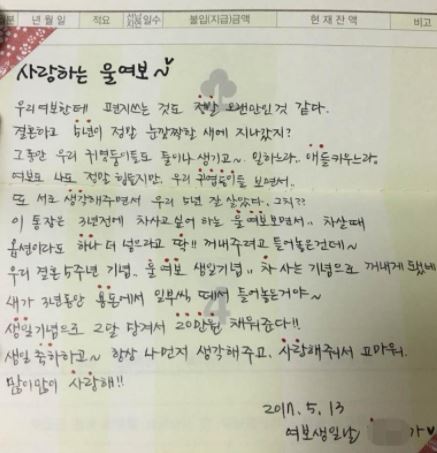 년 월 일 적요 일수 불입(지급)금액 현 재 잔 액 비고
사랑하는 울여보~♥
우리여보한테 편지쓰는 것도 정말 오랜만인것 같다.
결혼하고 5년이 정말 눈깜짝할 새에 지나갔지?
그동안 우리 귀염둥이들도 둘이나 생기고~ 일하느라, 애들키우느라,
여보도 나도 정말 힘들지만, 우리 귀염둥이들 보면서..
또 서로 생각해주면서 우리 5년 잘 살았다. 그치??
이 통장은 3년전에 차사고싶어 하는 울여보보면서.. 차살때
옵션이라도 하나 더 넣으라고 딱!! 꺼내주려고 들어놓은건데~
우리 결혼 5주년 기념.. 울여보 생일기념.. 차 사는 기념으로 꺼내게 됐네
내가 3년동안 용돈에서 일부씩 떼서 들어놓은거야~
4
생일기념으로 2달 당겨서 20만원 채워준다!!
생일 축하하고~ 항상 나먼저 생각해주고, 사랑해줘서 고마워.
많이많이 사랑해!!
2017. 5. 13
여보생일날 가♥